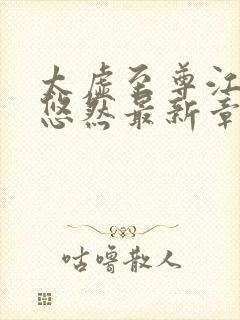 太虚至尊江
悠然最新章
咕噜散人